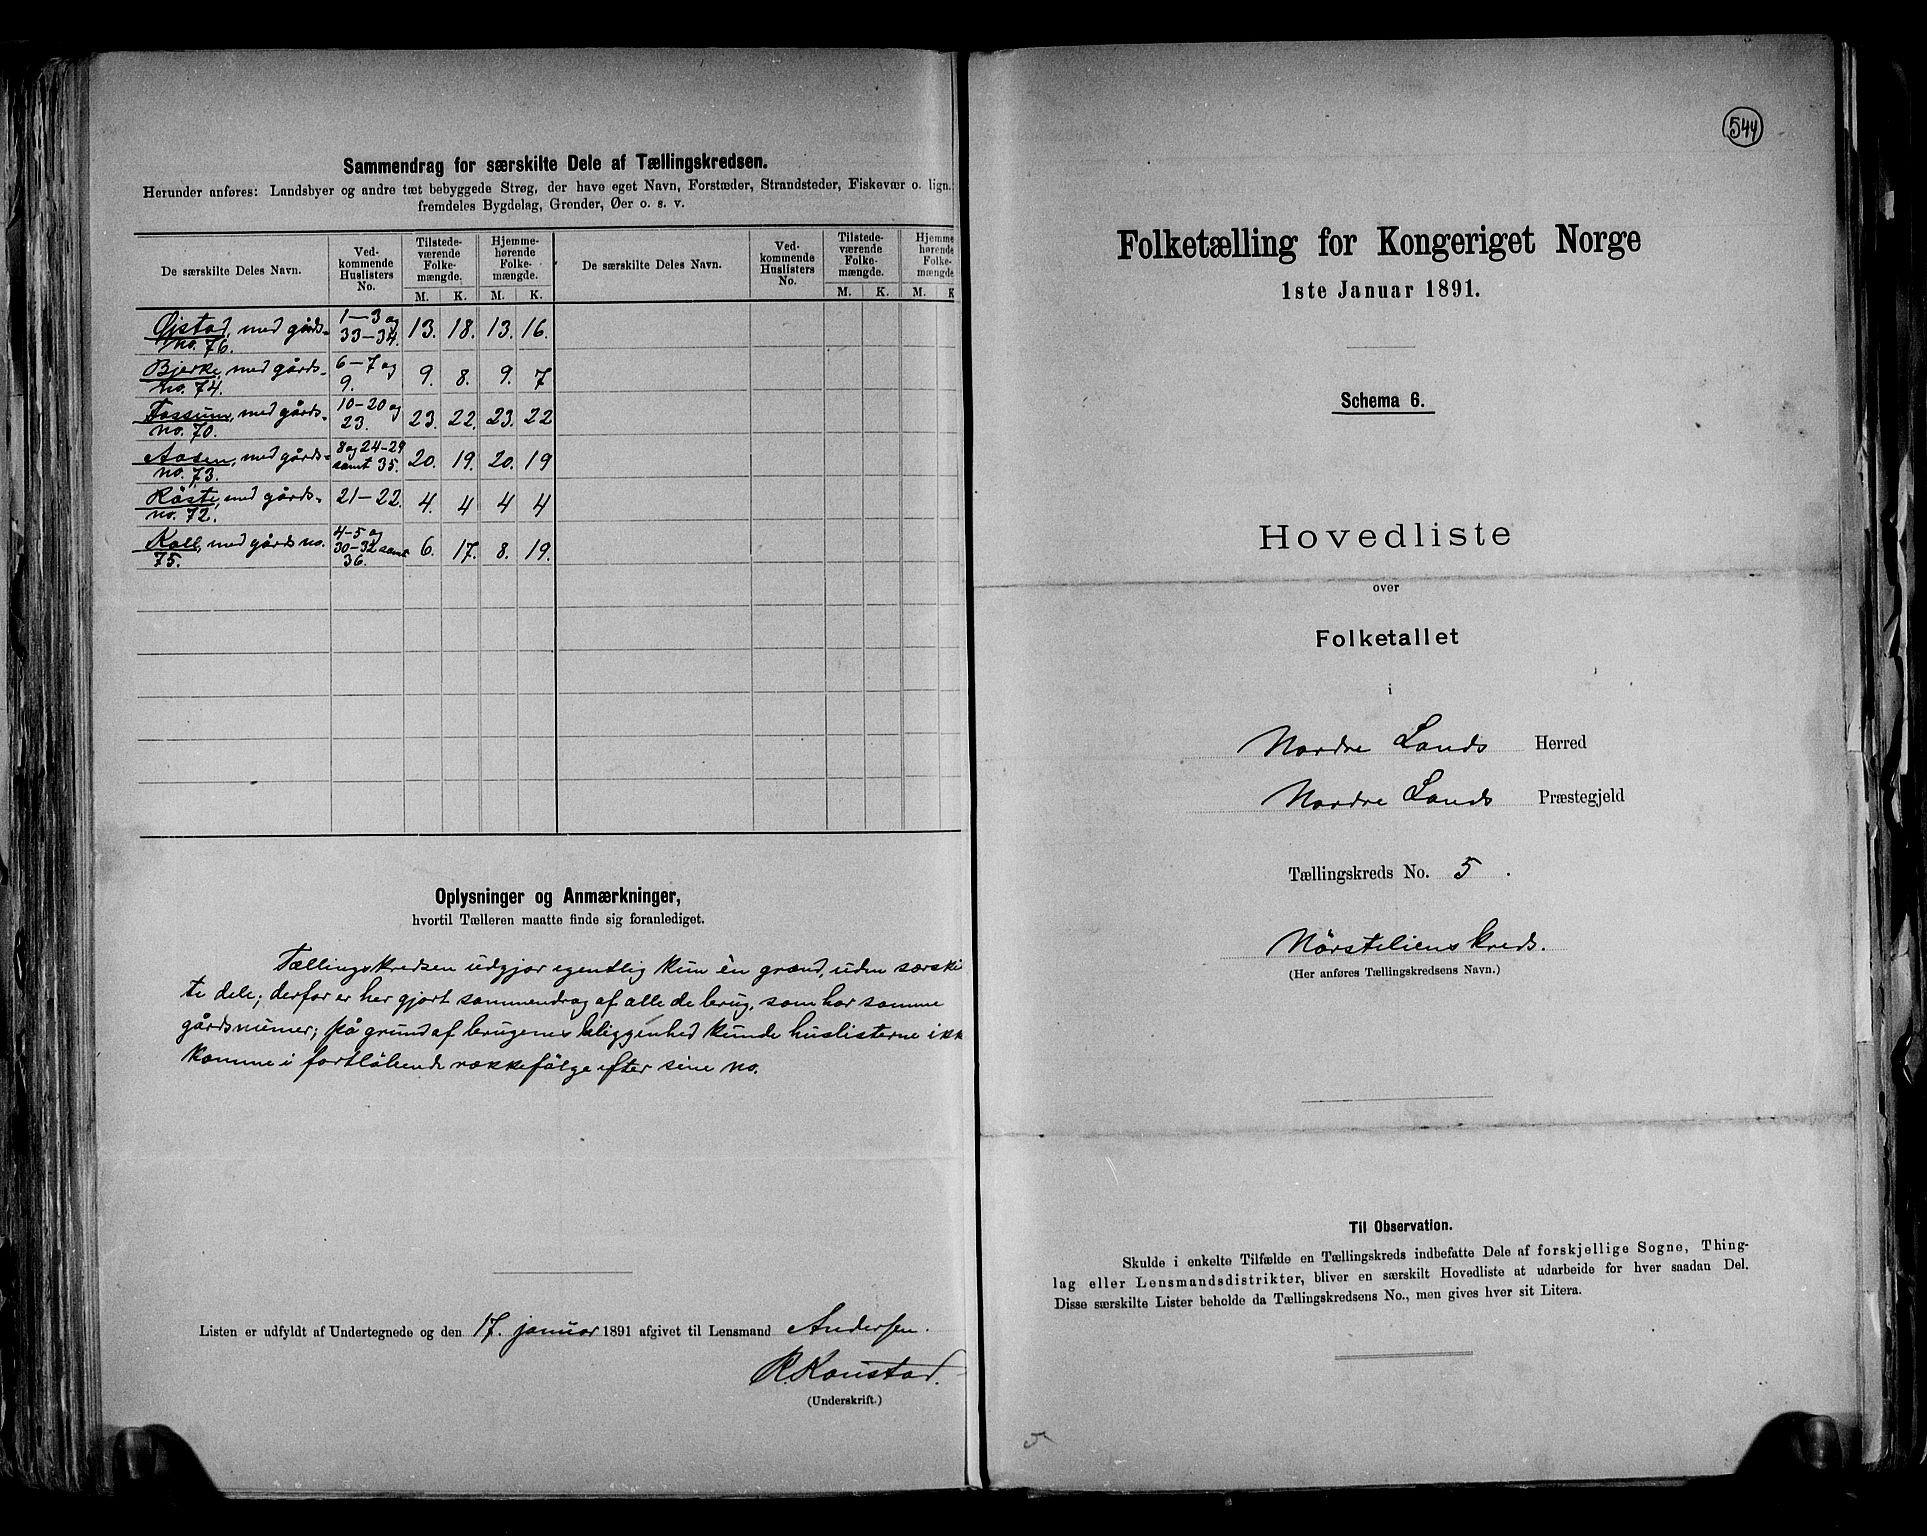 Sammendrag for særskilte Dele af Tællingskredsen.
Herunder anføres: Landsbyer og andre tæt bebyggede Strøg, der have eget Navn, Forstæder, Strandsteder, Fiskevær o. lign.
fremdeles Bygdelag, Grender, Øer o. s. v.
De særskilte Deles Navn. Ved-kommende Huslisters No. Tilstede-værende Folke-mængde. M. K. Hjemme-hørende Folke-mængde. M. K. De særskilte Deles Navn. Ved-kommende Huslisters No. Tilstede-værende Folke-mængde. M. K. Hjemme-hørende Folke-mængde. M. K
Øistad, med gårds-no. 76. 1-3 og 33-34. 13. 18. 13. 16.
Bjerke, med gårds-no. 74. 6-7 og 9. 9. 8. 9. 7
Fossum, med gårds-no. 70. 10-20 og 23. 23. 22. 23. 22
Aasen, med gårds-no. 73. 8 og 24-29 samt 35. 20. 19. 20. 19
Råste, med gårds-no. 72. 21-22. 4. 4 4 4
Koll, med gårds no. 75. 4-5 og 30-32 samt 36. 6. 17. 8. 19.
Oplysninger og Anmærkninger,
hvortil Tælleren maatte finde sig foranlediget.
Tællingskredsen udgjør egentlig kun èn grænd, uden særski
te dele; derfor er her gjort sammendrag af alle de brug, som har samme
gårdsnumer; på grund af brugenes beliggenhed kunde huslisterne ikk
komme i fortløbende rækkefølge efter sine no.
Listen er udfyldt af Undertegnede og den 17. januar 1891 afgivet til Lensmand Andersen.
R. Konstad.
(Underskrift.)
544
Folketælling for Kongeriget Norge
1ste Januar 1891.
Schema 6.
Hovedliste
over
Folketallet
i
Nordre Lands Herred
Nordre Lands Præstegjeld
Tællingskreds No. 5.
Nørsteliens kreds.
(Her anføres Tællingskredsens Navn.)
Til Observation.
Skulde i enkelte Tilfælde en Tællingskreds indbefatte Dele af forskjellige Sogne, Thing-
lag eller Lensmandsdistrikter, bliver en særskilt Hovedliste at udarbeide for hver saadan Del.
Disse særskilte Lister beholde da Tællingskredsens No., men gives hver sit Litera.
5